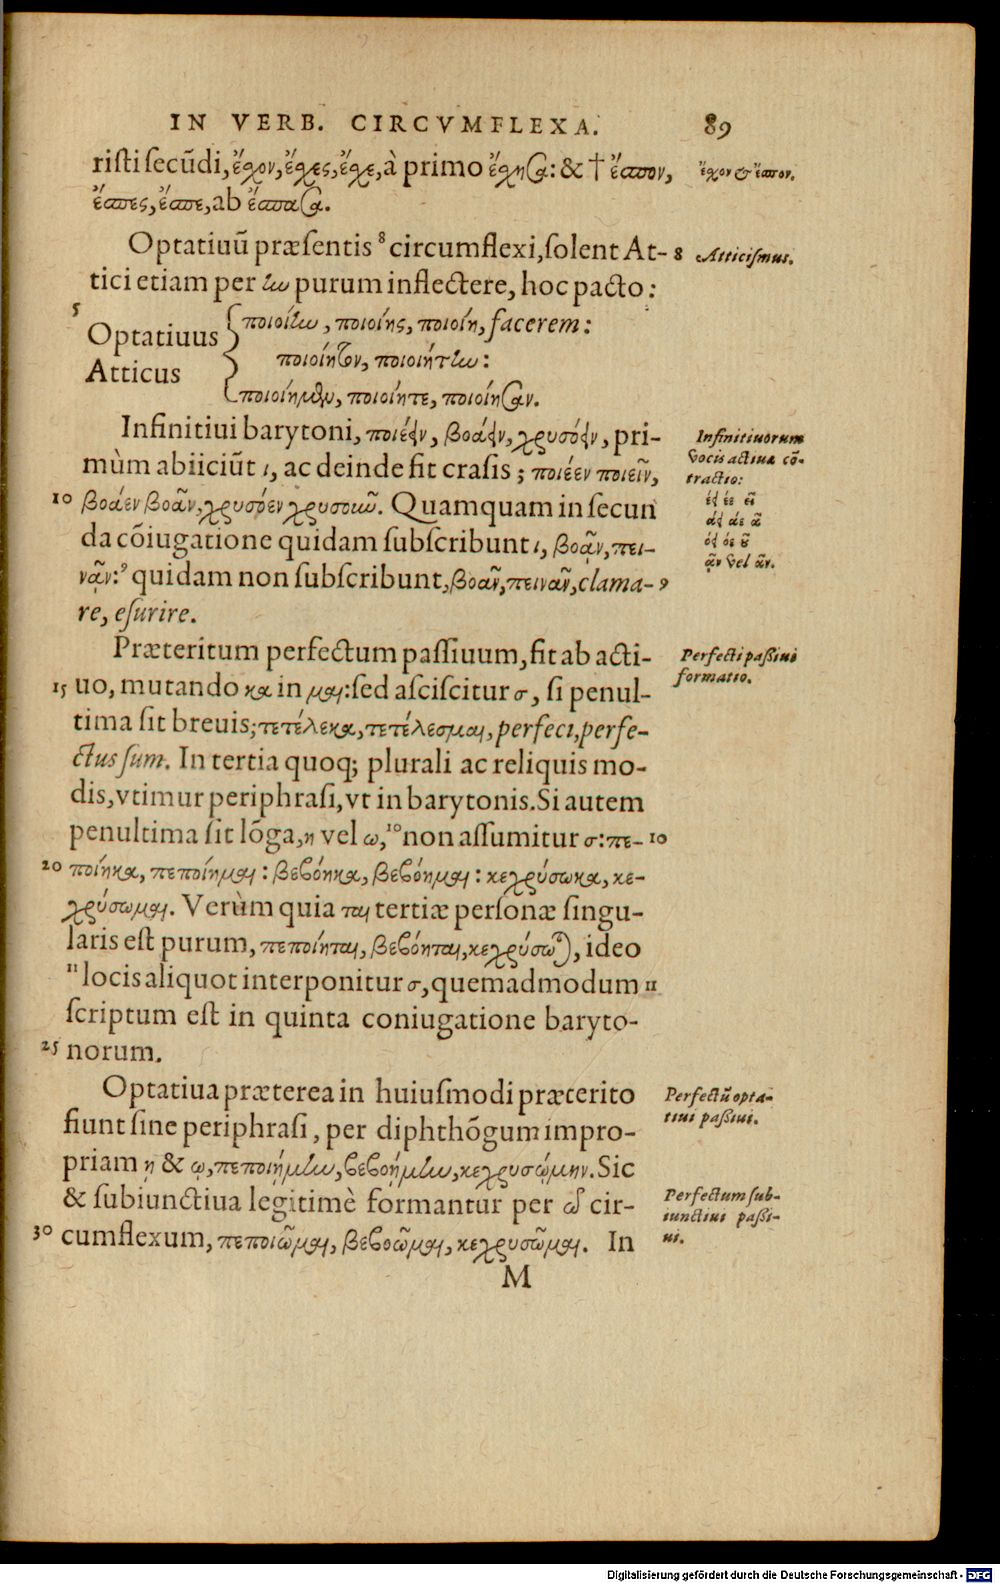 IN VERB. CIRCVMFLEXA. 89
risti secūdi, ἔχον, ἔχες, ἔχε, à primo ἔχησα: & † ἔσπον,
ἔσπες, ἔσπε, ab ἔσπασα.
ἔχον & ἔσπον.
Optatiuū præsentis ⁸ circumflexi, solent At- 8
Atticismus.
tici etiam per ην purum inflectere, hoc pacto:
5
Optatiuus
Atticus
ποιοίην, ποιοίης, ποιοίη, facerem:
ποιοίητον, ποιοιήτην:
ποιοίημεν, ποιοίητε, ποιοίησαν.
Infinitiui barytoni, ποιέειν, βοάειν, χρυσόειν, pri-
mùm abiiciūt ι, ac deinde fit crasis; ποιέεν ποιεῖν,
10 βοάεν βοᾶν, χρυσόεν χρυσοιῶ. Quamquam in secun
da cōiugatione quidam subscribunt ι, βοᾷν, πει-
νᾷν:⁹ quidam non subscribunt, βοᾶν, πεινᾶν, clama- 9
re, esurire.
Infinitiuorum
vocis actiuæ cō-
tractio:
έει έε εῖ
άει άε ᾶ
όει όε οῦ
ᾷν vel ᾶν.
Præteritum perfectum passiuum, fit ab acti-
15 uo, mutando κα in μαι: sed asciscitur σ, si penul-
tima sit breuis; τετέλεκα, τετέλεσμαι, perfeci, perfe-
ctus sum. In tertia quoq; plurali ac reliquis mo-
dis, vtimur periphrasi, vt in barytonis. Si autem
penultima sit lōga, η vel ω, ¹⁰ non assumitur σ: πε- 10
20 ποίηκα, πεποίημαι: βεβόηκα, βεβόημαι: κεχρύσωκα, κε-
χρύσωμαι. Verùm quia ται tertiæ personæ singu-
laris est purum, πεποίηται, βεβόηται, κεχρύσωται), ideo
¹¹ locis aliquot interponitur σ, quemadmodum 11
scriptum est in quinta coniugatione baryto-
25 norum.
Perfecti passiui
formatio.
Optatiua præterea in huiusmodi præterito
fiunt sine periphrasi, per diphthōgum impro-
priam ῃ & ῳ, πεποιήμην, βεβοήμην, κεχρυσῴμην. Sic
& subiunctiua legitimè formantur per ῶ cir-
30 cumflexum, πεποιῶμαι, βεβοῶμαι, κεχρυσῶμαι. In
Perfectū opta-
tiui passiui.
Perfectum sub-
iunctiui passi-
ui.
M
Digitalisierung gefördert durch die Deutsche Forschungsgemeinschaft - DFG